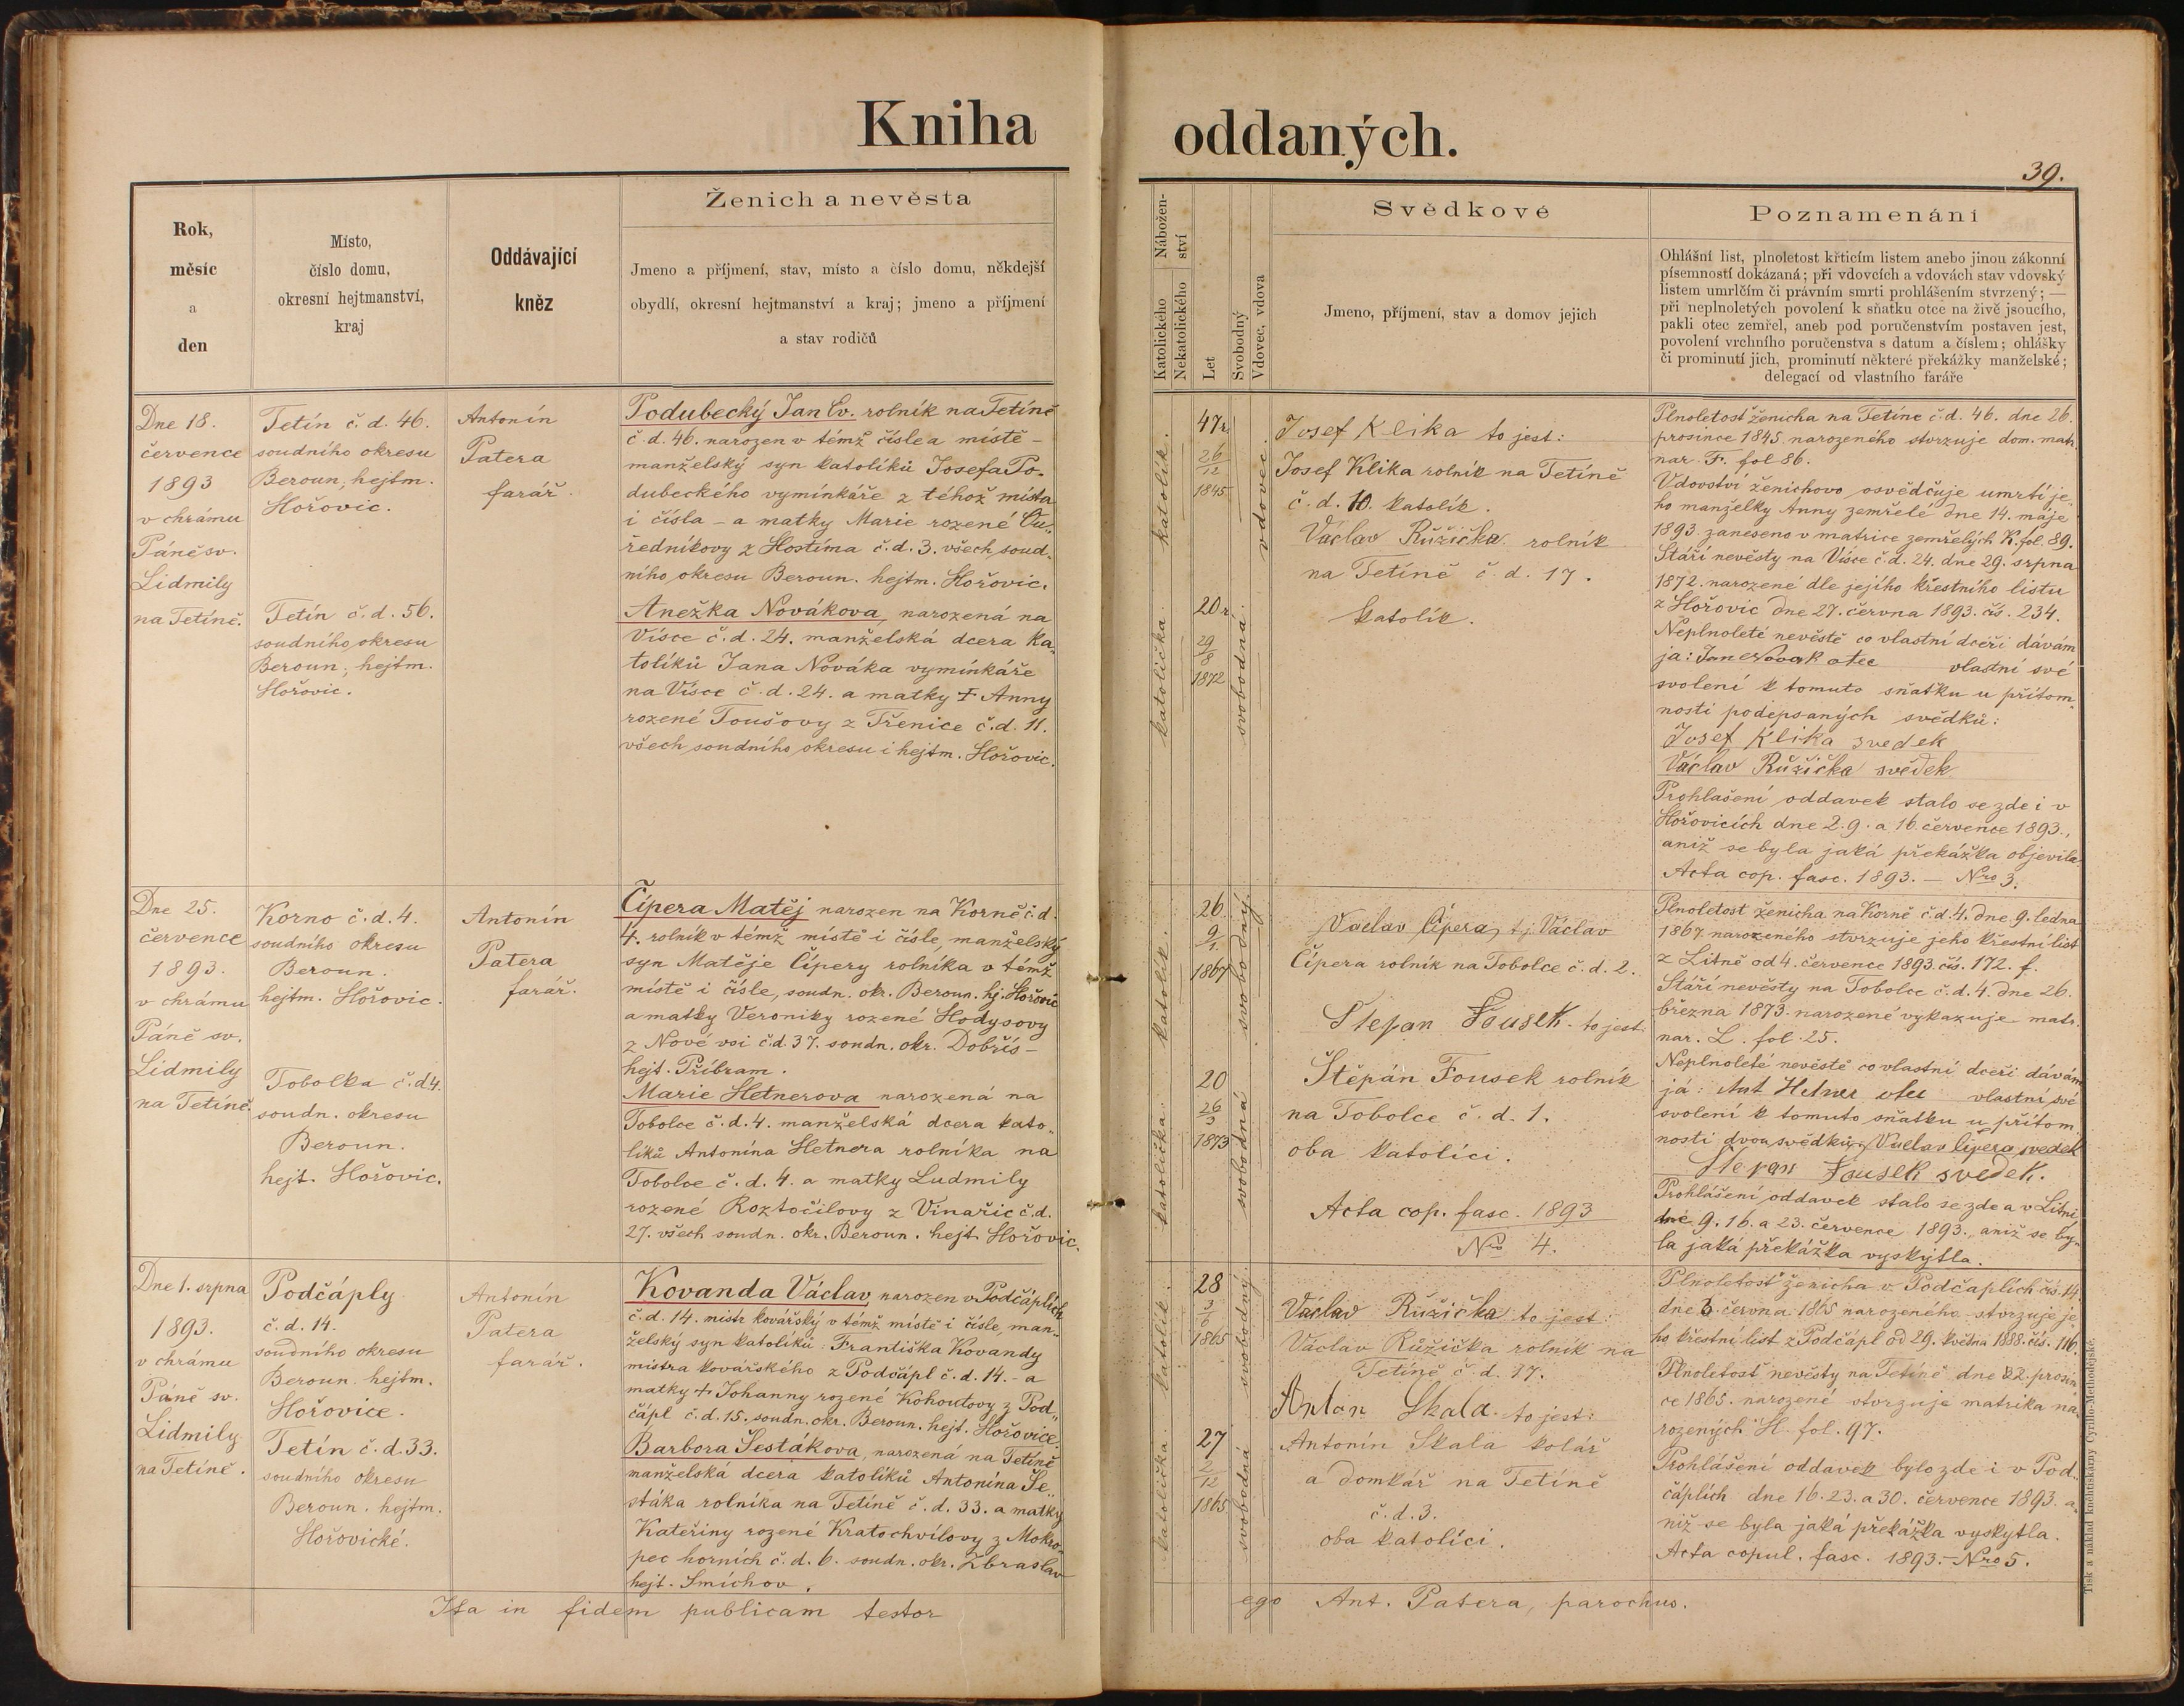 Kniha oddaných.
39.
Rok,
měsíc
a
den
Místo,
číslo domu,
okresní hejtmanství,
kraj
Oddávající
kněz
Ženich a nevěsta
Jmeno a příjmení, stav, místo a číslo domu, někdejší
obydlí, okresní hejtmanství a kraj; jmeno a příjmení
a stav rodičů
Nábožen-
ství
Katolického
Nekatolického
Let
Svobodný
Vdovec, vdova
Svědkové
Jmeno, příjmení, stav a domov jejich
Poznamenání
Ohlášní list, plnoletost křticím listem anebo jinou zákonní
písemností dokázaná; při vdovcích a vdovách stav vdovský
listem umrlčím či právním smrti prohlášením stvrzený; —
při neplnoletých povolení k sňatku otce na živě jsoucího,
pakli otec zemřel, aneb pod poručenstvím postaven jest,
povolení vrchního poručenstva s datum a číslem; ohlášky
či prominutí jich, prominutí některé překážky manželské;
delegací od vlastního faráře
Dne 18.
července
1893
v chrámu
Páně sv.
Lidmily
na Tetíně.
Tetín č. d. 46.
soudního okresu
Beroun, hejtm.
Hořovic.
Tetín č. d. 56.
soudního okresu
Beroun, hejtm.
Hořovic.
Antonín
Patera
farář.
Podubecký Jan Ev. rolník na Tetíně
č. d. 46. narozen v témž čísle a místě –
manželský syn katolíků Josefa Po-
dubeckého vymínkáře z téhož místa
i čísla – a matky Marie rozené
ředníkovy z Hostíma č. d. 3. všech soud-
ního okresu Beroun. hejtm. Hořovic.
Anežka Novákova, narozená na
Vísce č. d. 24. manželská dcera ka-
tolíků Jana Nováka vymínkáře
na Vísce č. d. 24. a matky † Anny
rozené Toušovy z Třenice č. d. 11.
všech soudního okresu i hejtm. Hořovic.
katolík.
katolička.
47 r.
26/12
1845
20 r.
29/8
1872
vdovec.
svobodná.
Josef Klika to jest:
Josef Klika rolník na Tetíně
č. d. 10. katolík.
Václav Růžička rolník
na Tetíně č. d. 17.
katolík.
Plnoletosť ženicha na Tetíne č. d. 46. dne 26.
prosince 1845. narozeného stvrzuje dom. matr.
nar. F. fol 86.
Vdovství ženichovo osvědčuje umrtí je-
ho manželky Anny zemřelé dne 14. máje
1893. zaneseno v matrice zemřelých K. fol. 89.
Stáří nevěsty na Vísce č. d. 24. dne 29. srpna
1872. narozené dle jejího křestního listu
z Hořovic dne 27. června 1893. čís. 234.
Neplnoleté nevěstě co vlastní dceři dávám
ja: Jan Novak otec vlastní své
svolení k tomuto sňatku u přítom-
nosti podepsaných svědků:
Josef Klika svedek
Václav Růžička svědek
Prohlašení oddavek stalo se zde i v
Hořovicích dne 2. 9. a 16. července 1893.,
aniž se byla jaká překážka objevila.
Acta cop. fasc. 1893. — Nro 3.
Dne 25.
července
1893.
v chrámu
Páně sv.
Lidmily
na Tetíně.
Korno č. d. 4.
soudního okresu
Beroun.
hejtm. Hořovic.
Tobolka č. d 4.
soudn. okresu
Beroun.
hejt. Hořovic.
Antonín
Patera
farář.
Čípera Matěj narozen na Korně č. d.
4. rolník v témž místě i čísle, manželský
syn Matěje Čípery rolníka v témž
místě i čísle, soudn. okr. Beroun. hj. Hořovic
a matky Veroniky rozené Hodysovy
z Nové vsi č. d. 37. soudn. okr. Dobřís-
hejt. Příbram.
Marie Hetnerova narozená na
Tobolce č. d. 4. manželská dcera kato-
líků Antonína Hetnera rolníka na
Tobolce č. d. 4. a matky Ludmily
rozené Roztočilovy z Vinařic č. d.
27. všech soudn. okr. Beroun. hejt. Hořovic.
katolík.
katolička.
26
9/1
1867
20
26/3
1873
svobodný.
svobodná
Vaclav Čipera, t. j. Václav
Čípera rolník na Tobolce č. d. 2.
Štepan Fousek to jest:
Štěpán Fousek rolník
na Tobolce č. d. 1.
oba katolíci.
Acta cop. fasc. 1893
Nro 4.
Plnoletost ženicha na Korně č. d. 4. dne 9. ledna
1867. narozeného stvrzuje jeho křestní list
z Litně od 4. července 1893. čís. 172. f.
Stáří nevěsty na Tobolce č. d. 4. dne 26.
března 1873. narozené vykazuje matr.
nar. L. fol. 25.
Neplnoleté nevěstě co vlastní dceři dávám
já: Ant Hetner otec vlastní své
svolení k tomuto sňatku u přítom-
nosti dvou svědků: Vaclav Čipera svedek
Štepan Fousek svedek.
Prohlášení oddavek stalo se zde a v Litni
dne 9. 16. a 23. července 1893. aniž se by-
la jaká překážka vyskytla.
Dne 1. srpna
1893.
v chrámu
Páně sv.
Lidmily
na Tetíně.
Podčáply
č. d. 14.
soudního okresu
Beroun. hejtm.
Hořovice.
Tetín č. d. 33.
soudního okresu
Beroun. hejtm.
Hořovické.
Antonín
Patera
farář.
Kovanda Václav narozen v Podčáplích
č. d. 14. mistr kovářský v témž místě i čísle, man-
želský syn katolíků: Františka Kovandy
mistra kovářského z Podčápl č. d. 14. – a
matky † Johanny rozené Kohoutovy z Pod-
čápl č. d. 15. soudn. okr. Beroun. hejt. Hořovice.
Barbora Šestákova, narozená na Tetíně
manželská dcera katolíků Antonína Še-
stáka rolníka na Tetíně č. d. 33. a matky
Kateřiny rozené Kratochvílovy z Mokro-
pec horních č. d. 6. soudn. okr. Zbraslav
hejt. Smíchov.
katolík.
katolička.
28
3/6
1865
27
2/12
1865
svobodný
svobodná
Václav Růžička to jest:
Václav Růžička rolník na
Tetíně č. d. 17.
Anton Skala to jest:
Antonín Skala kolář
a domkář na Tetíně
č. d. 3.
oba katolíci.
Plnoletosť ženicha v Podčaplích čís. 14
dne 3. června 1865 narozeného stvrzuje je-
ho křestní list z Podčápl od 29. května 1888. čís. 116.
Plnoletosť nevěsty na Tetíně dne 2. prosin-
ce 1865. narozené stvrzuje matrika na-
rozených H. fol. 97.
Prohlášení oddavek bylo zde i v Pod-
čáplích dne 16. 23. a 30. července 1893. a-
niž se byla jaká překážka vyskytla.
Acta copul. fasc. 1893. – Nro 5.
Ita in fidem publicam testor ego Ant. Patera, parochus.
Tisk a náklad knihtiskárny Cyrillo-Methodějské